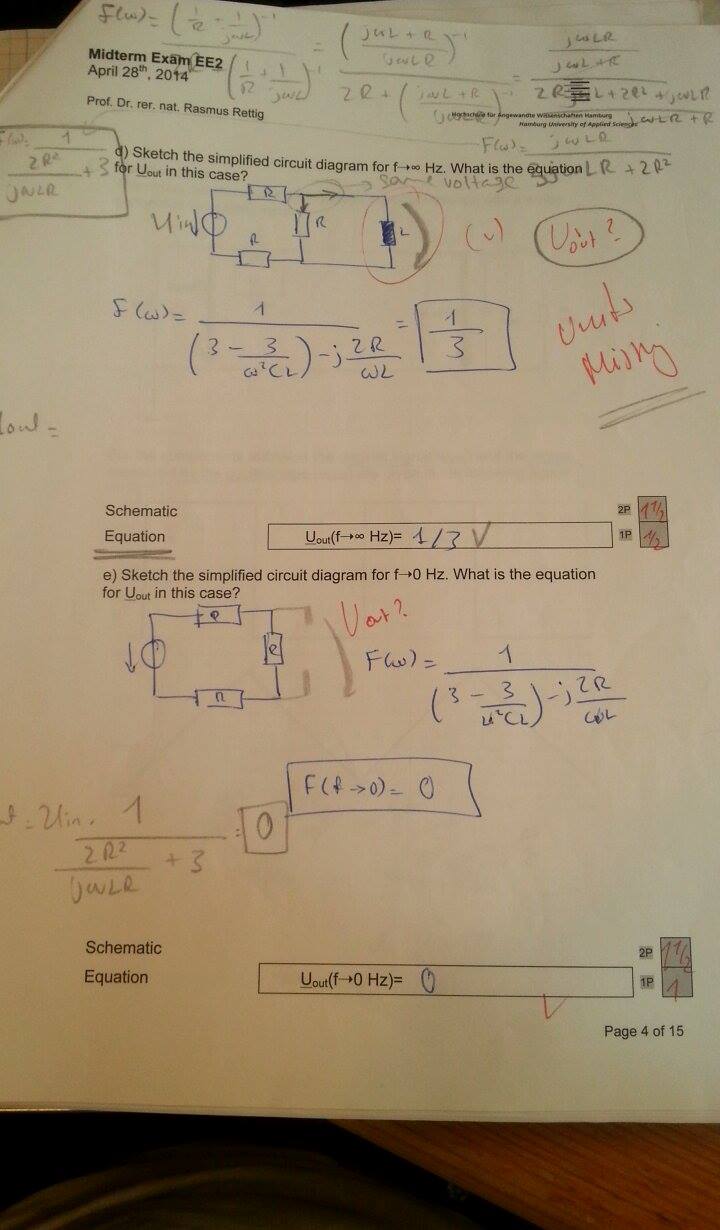 F(ω) = (1/R + 1/jωL)^-1 / (1/R + 1/jωL)^-1 = (jωL + R / jωLR)^-1 / 2R + (jωL + R / jωLR)^-1 = jωLR / jωL + R
Midterm Exam EE2
April 28th, 2014
Prof. Dr. rer. nat. Rasmus Rettig
Hochschule für Angewandte Wissenschaften Hamburg
Hamburg University of Applied Sciences
jωLR + R
F(ω) = jωLR / 3jωLR + 2R²
F(ω) = 1 / 2R²/jωLR + 3
d) Sketch the simplified circuit diagram for f→∞ Hz. What is the equation
for Uout in this case?
→ same voltage
R
Uin
R
R
L
(v)
Uout?
F(ω) = 1 / (3 - 3/ω²CL) - j 2R/ωL = 1/3
Units
Missing
out =
Schematic
2P
1 1/2
Equation
Uout(f→∞ Hz)= 1/3
1P
1/2
e) Sketch the simplified circuit diagram for f→0 Hz. What is the equation
for Uout in this case?
R
Uout?
R
R
F(ω) = 1 / (3 - 3/ω²CL) - j 2R/ωL
F(f→0) = 0
= Uin . 1 / 2R²/jωLR + 3 = 0
Schematic
2P
1 1/2
Equation
Uout(f→0 Hz)= 0
1P
1
Page 4 of 15